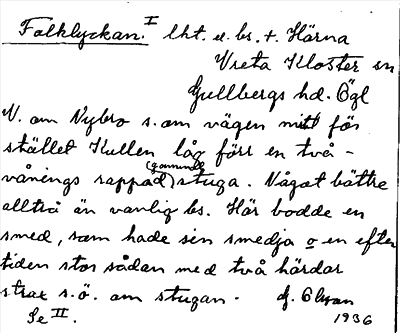 Falklyckan. I lht. u. bs. t. Härna
Vreta Kloster sn
Gullbergs hd. Ögl
V. om Nybro s. om vägen mitt för
stället Kullen låg förr en två-
vånings rappad (gammal) stuga. Något bättre
alltså än vanlig bs. Här bodde en
smed, som hade sin smedja o en efter
tiden stor sådan med två härdar
strax s.ö. om stugan. G. Olson
Se II. 1936